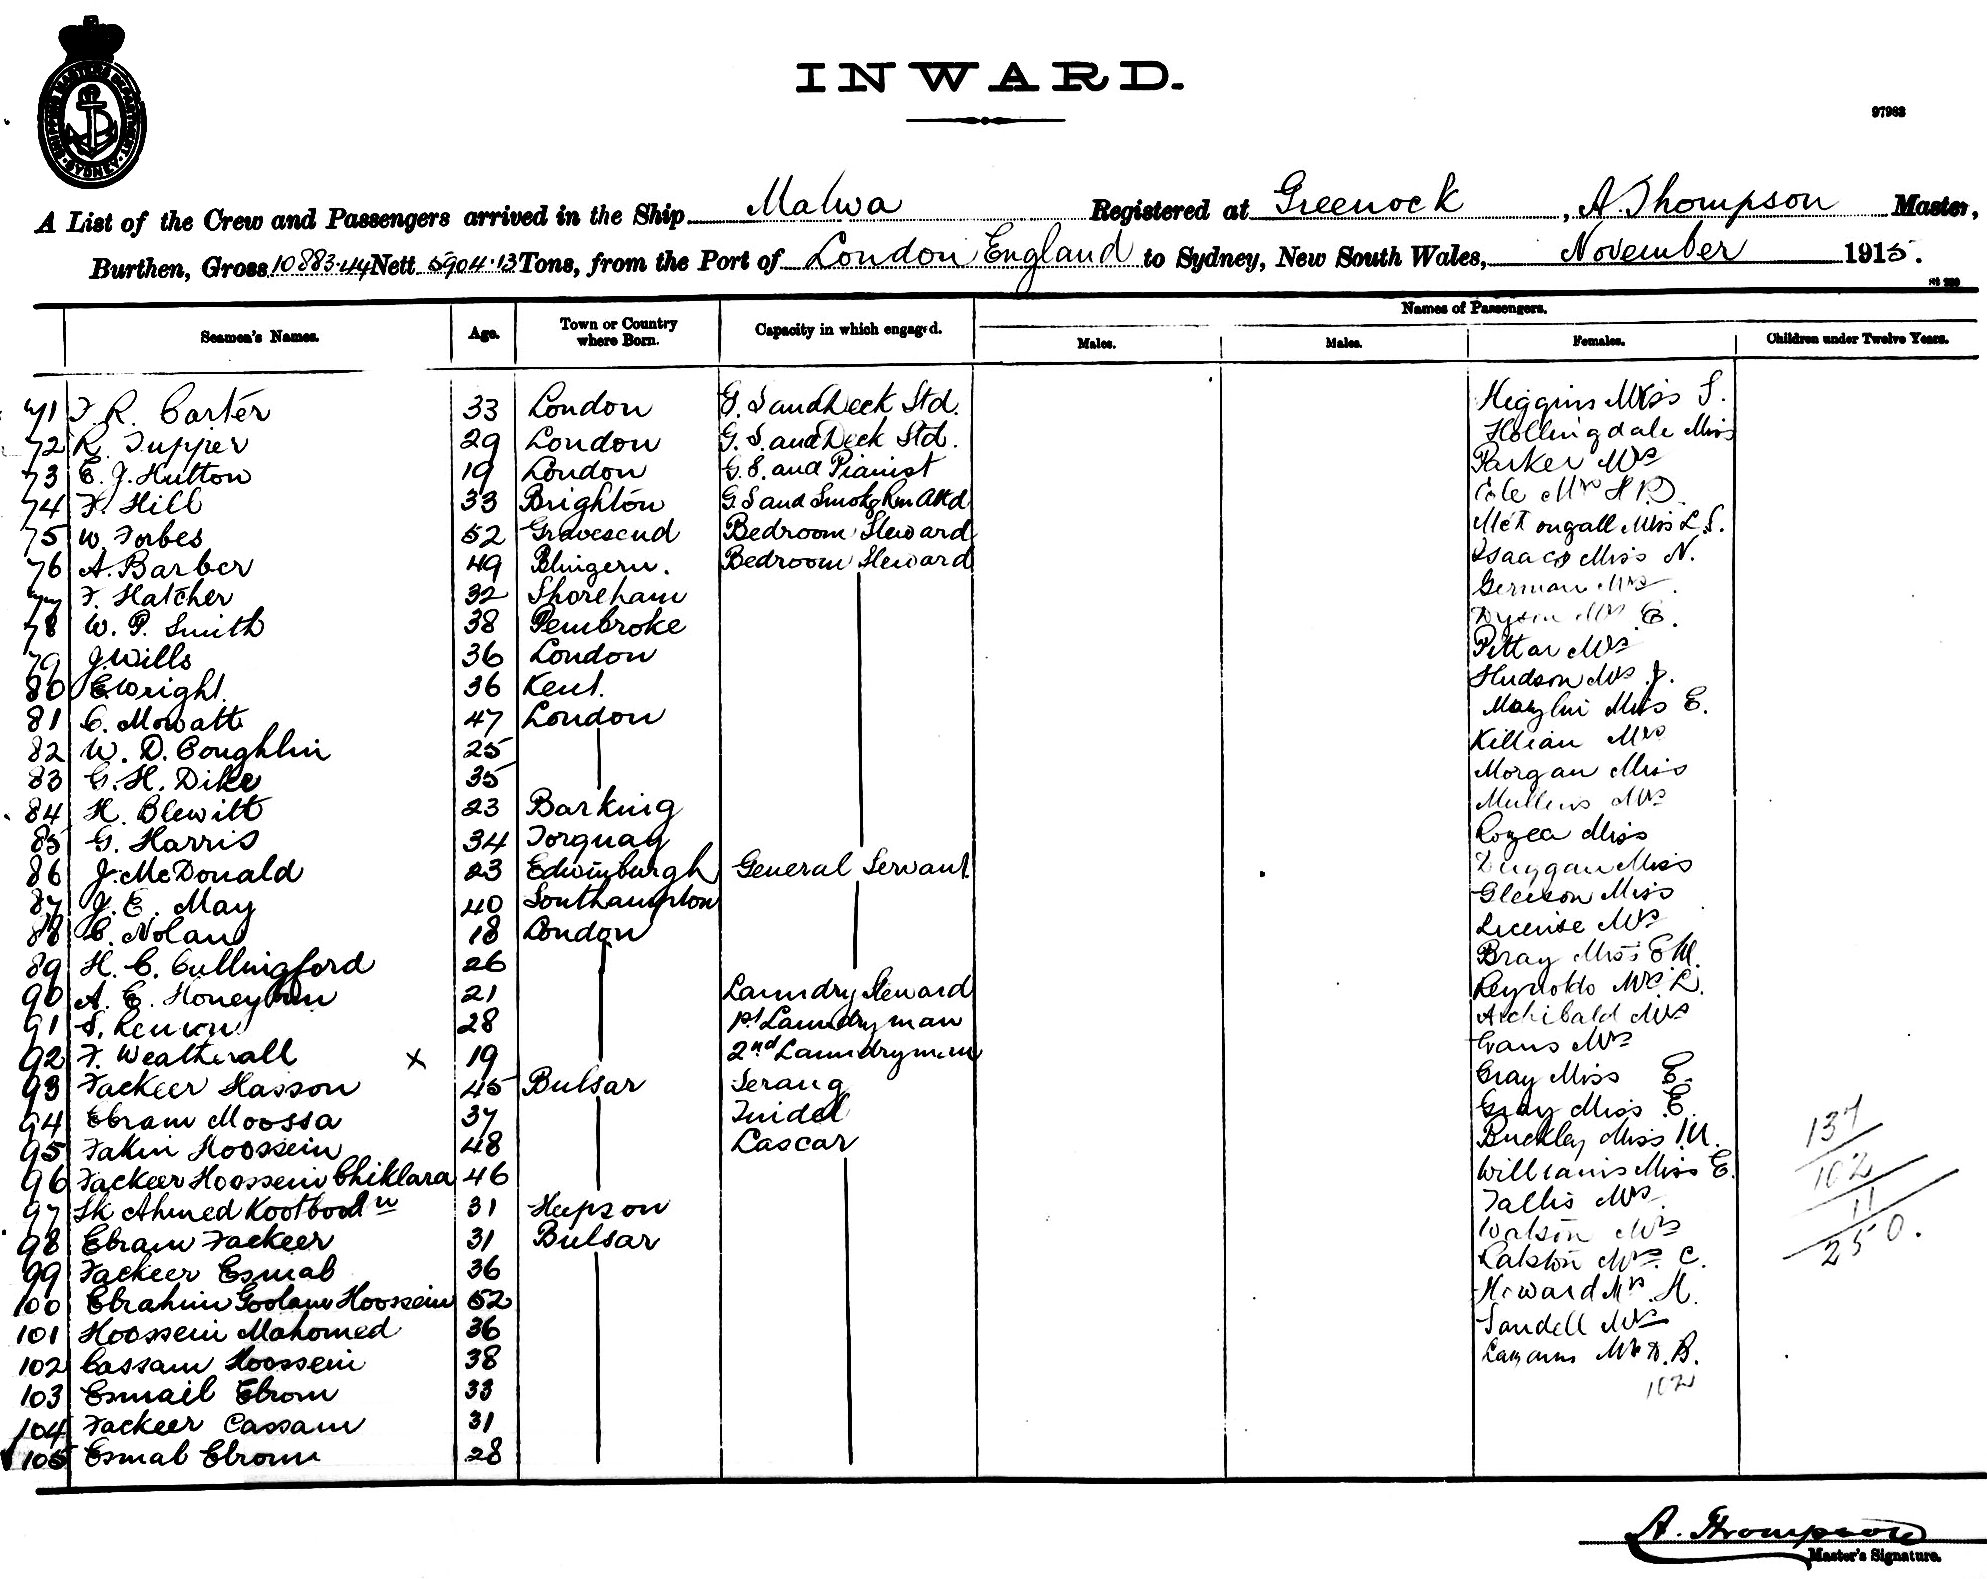 SHIPPING MASTERS DEPARTMENT SYDNEY
INWARD.
97963
A List of the Crew and Passengers arrived in the Ship Malwa Registered at Greenock, A. Thompson Master,
Burthen, Gross 10883.44 Nett 5904.13 Tons, from the Port of London England to Sydney, New South Wales, November 1915.
Names of Passengers.
Seamen's Names. Age. Town or Country where Born. Capacity in which engaged. Males. Males. Females. Children under Twelve Years.
71 F. R. Carter 33 London G. S. and Deck Std. Higgins Miss S.
72 R. Tupper 29 London G. S. and Deck Std. Hollingdale Miss
73 E. J. Hutton 19 London G. S. and Pianist Parker Mrs
74 F. Hill 33 Brighton G. S and Smokg Rm Attd
75 W. Forbes 52 Gravesend Bedroom Steward Miss L. S.
76 A. Barber 49 Bedroom Steward Isaacs Miss N.
77 F. Hatcher 32 Shoreham German Mrs
78 W. P. Smith 38 Pembroke Dyson Mrs E.
79 J. Wills 36 London Pittar Mrs
80 E Wright 36 Kent. Hudson Mrs J.
81 C. Mowatt 47 London Miss E.
82 W. D. Coughlin 25 Killian Mrs
83 G. H. Dike 35 Morgan Miss
84 H. Blewitt 23 Barking Mullens Mrs
85 G. Harris 34 Torquay Miss
86 J. McDonald 23 Edinburgh General Servant Duggan Miss
87 J. E. May 40 Southampton Gleeson Miss
88 C. Nolan 18 London Mrs
89 H. C. Cullingford 26 Bray Miss E M.
90 A. E. 21 Laundry Steward Reynolds L.
91 S. 28 1st Laundryman Archibald Mrs
92 F. Weatherall X 19 2nd Laundryman Evans Mrs
93 Fackeer Hasson 45 Bulsar Serang Gray Miss E.
94 Ebram Moossa 37 Tindel Gray Miss E.
95 Fakir Hoossein 48 Lascar Buckley Miss M.
96 Fackeer Hoossein Chiklara 46 Williams Miss E.
97 Sk Ahmed 31 Tallis Mrs
98 Ebram Fackeer 31 Bulsar Watson Mrs
99 Fackeer Esmal 36 Ralston Mrs. C.
100 Ebrahim Goolam Hoossein 52 Howard Mrs H.
101 Hoossein Mahomed 36 Sandell Mrs
102 Cassam Hoossein 38
103 Esmail Ebrom 33 102
104 Fackeer Cassam 31
105 Esmal Ebrom 28
137
102
11
250.
A. Thompson
Master's Signature.